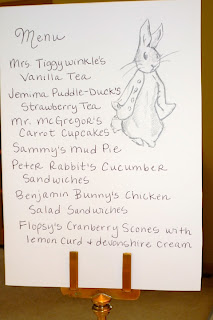 Menu
Mrs. Tiggywinkle's
Vanilla Tea
Jemima Puddle-Duck's
Strawberry Tea
Mr. McGregor's
Carrot Cupcakes
Sammy's Mud Pie
Peter Rabbit's Cucumber
Sandwiches
Benjamin Bunny's Chicken
Salad Sandwiches
Flopsy's Cranberry Scones with
lemon curd & devonshire cream